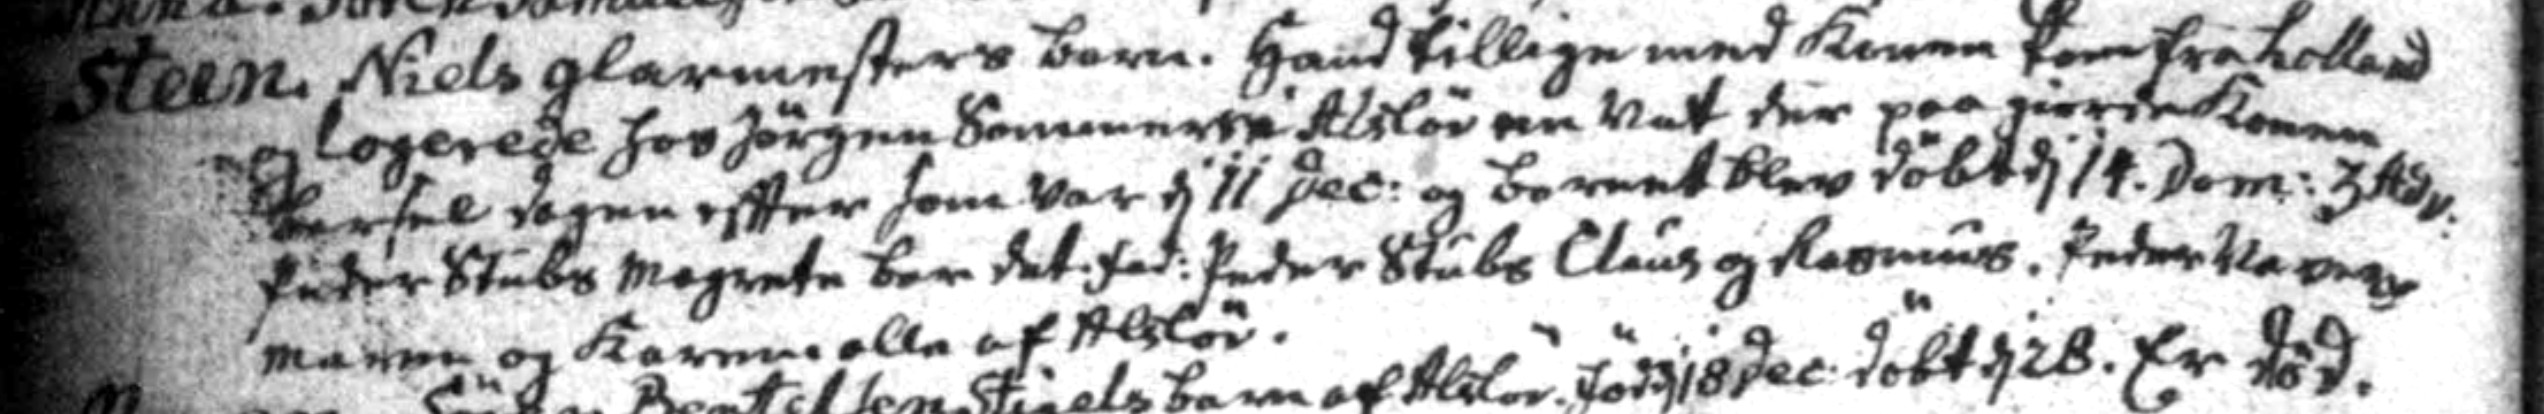 Steen. Niels glarmesters barn. Hand tillige med Konen kom fra Holland
og logerede hos Jörgen Sommers i Alslöv en Nat der paa giorde Konen
Barsel dagen effter som var dj 11 Dec: og barnet blev döbt dj 14. Dom: 3 Adv:
Peder Stubs Magrete bar det. Fad: Peder Stubs Claus og Rasmus. Peder
Maren og Karen alle af Alslöv.
Bentelsen barn af Alslöv. Föd dj 18 Dec. döbt dj 28. Er död.